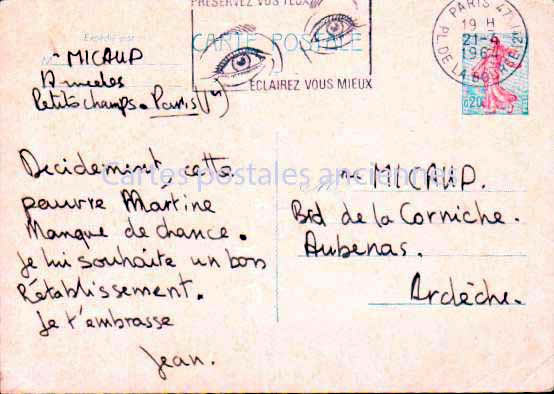 PRÉSERVEZ VOS YEUX
CARTE POSTALE
ÉCLAIREZ VOUS MIEUX
PARIS 47
19 H
21-4
196
PL. DE LA
0,20
Expédié par
MICAUD
Petits champs. Paris (1er)
Decidement, cette
pauvre Martine
Manque de chance.
Je lui souhaite un bon
Rétablissement.
Je t'embrasse
Jean.
MICAUD.
Bd de la Corniche.
Aubenas.
Ardèche.
Cartes postales anciennes